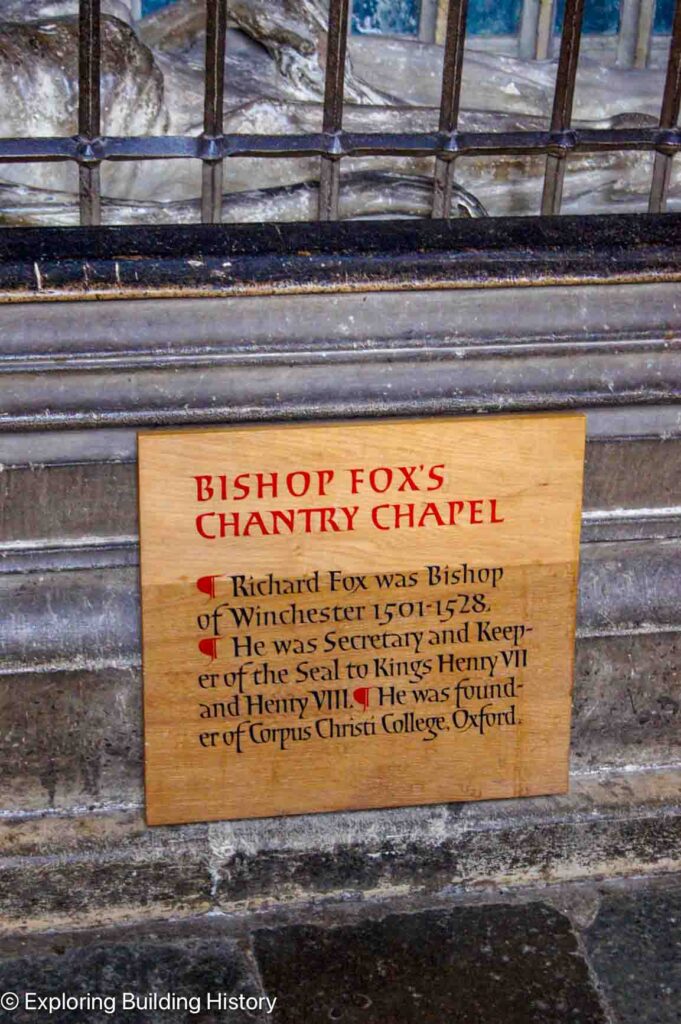 BISHOP FOX'S
CHANTRY CHAPEL
¶ Richard Fox was Bishop
of Winchester 1501-1528.
¶ He was Secretary and Keep-
er of the Seal to Kings Henry VII
and Henry VIII. ¶ He was found-
er of Corpus Christi College, Oxford.
© Exploring Building History